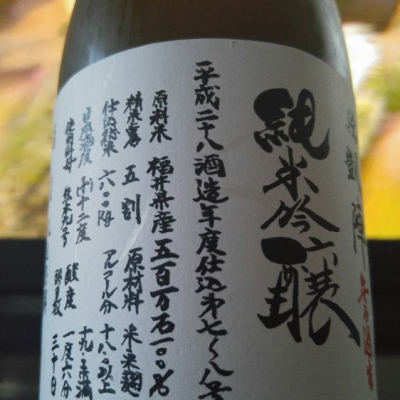 凱陣
純米吟醸
平成二十八酒造年度仕込第七十八号
原料米 福井県産五百万石一〇〇%
精米歩合 五割 原材料 米 米麹
仕込総米 六〇〇kg アルコール分 十八以上
十九・未満
日本酒度 十二度 酸度 一度六分
酵母 九号 三十日